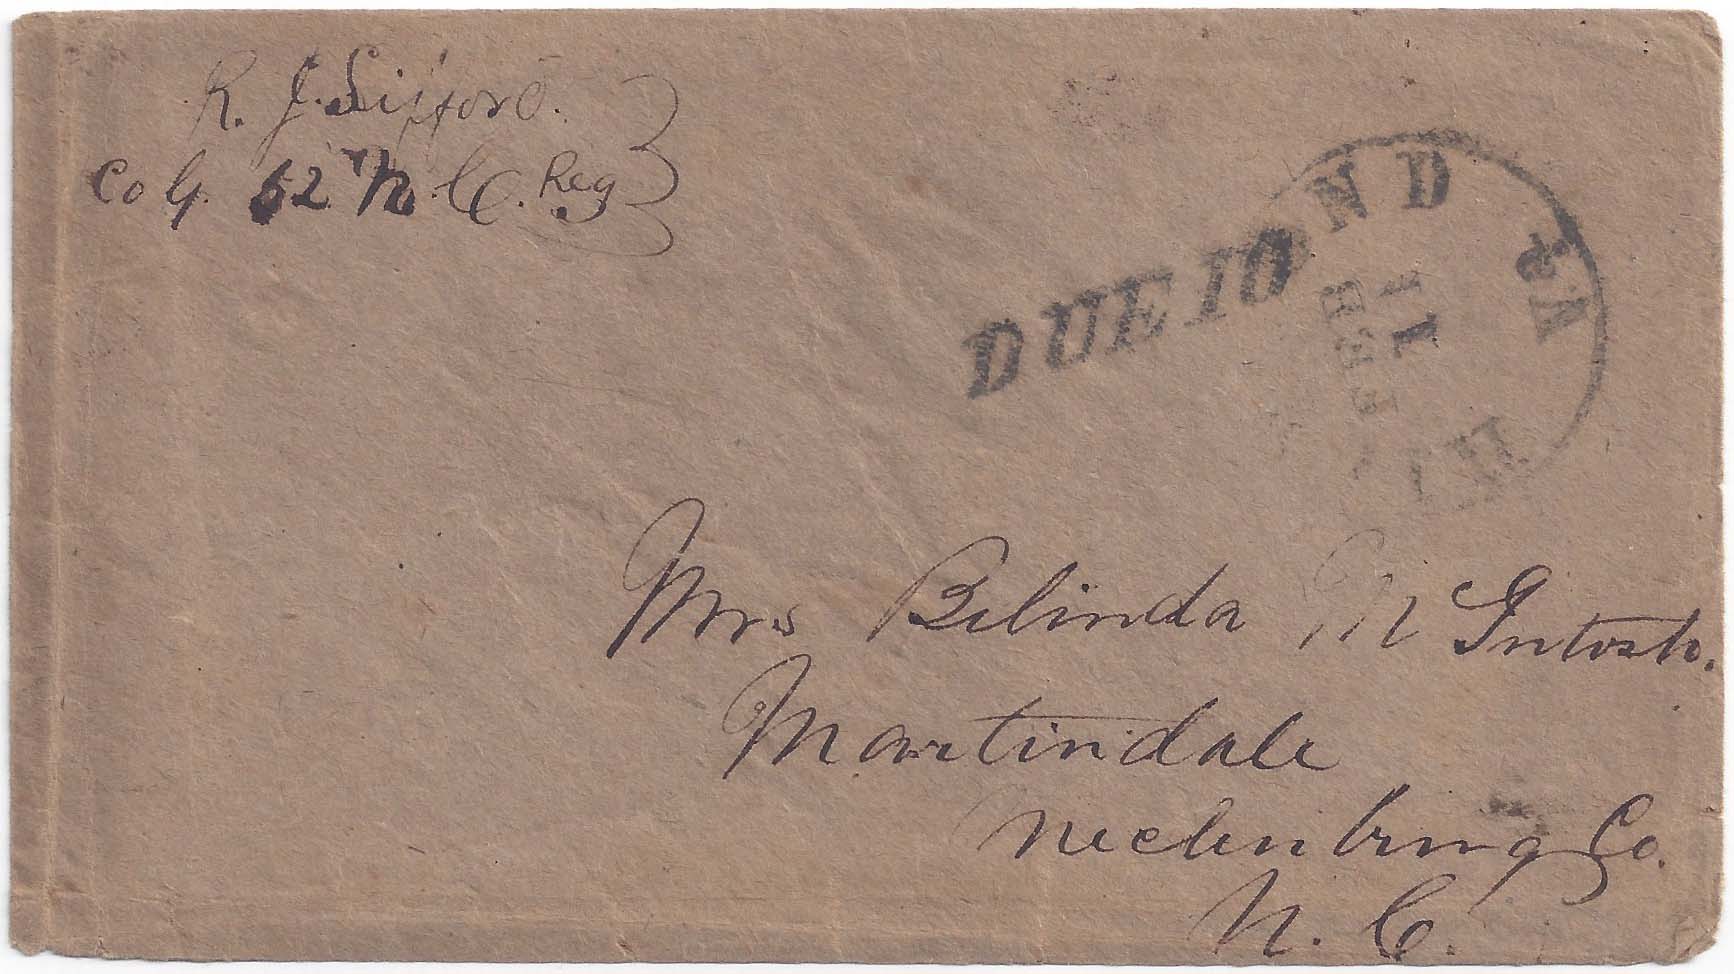 R. J. Sifford.
Co G. 52 N. C. Reg
DUE 10
ND VA
FEB
11
Mrs Belinda McIntosh.
Martindale
Mecklenburg Co.
N. C.